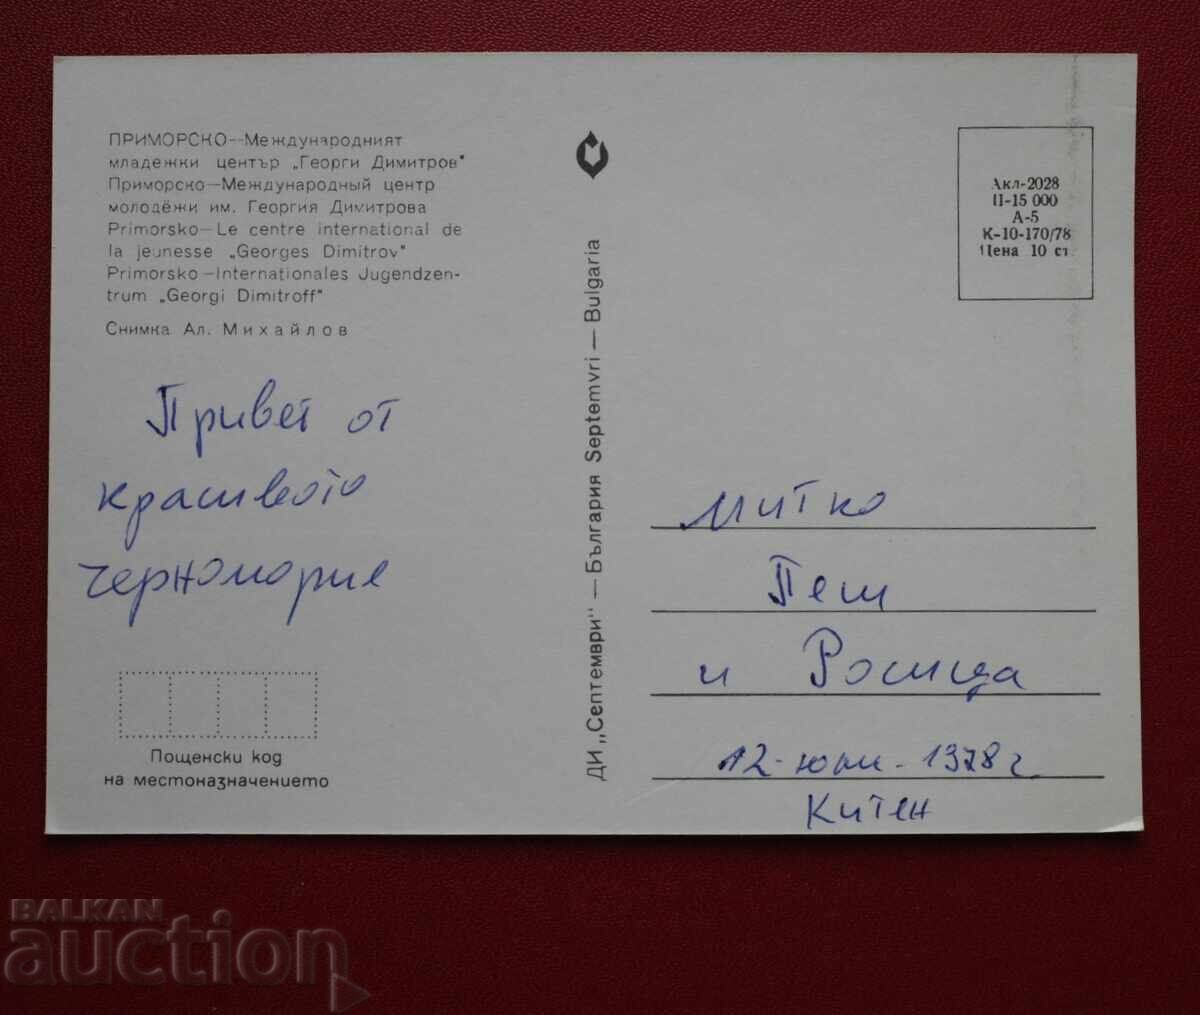 ПРИМОРСКО—Международният
младежки център „Георги Димитров"
Приморско—Международный центр
молодёжи им. Георгия Димитрова
Primorsko—Le centre international de
la jeunesse „Georges Dimitrov"
Primorsko—Internationales Jugendzen-
trum „Georgi Dimitroff"
Снимка Ал. Михайлов
Привет от
красивото
черноморие
Пощенски код
на местоназначението
ДИ „Септември" — България Septemvri — Bulgaria
Акл-2028
П-15 000
А-5
К-10-170/78
Цена 10 ст.
Митко
Пеш
и Росица
12-юли-1978 г
Китен
BALKAN
auction